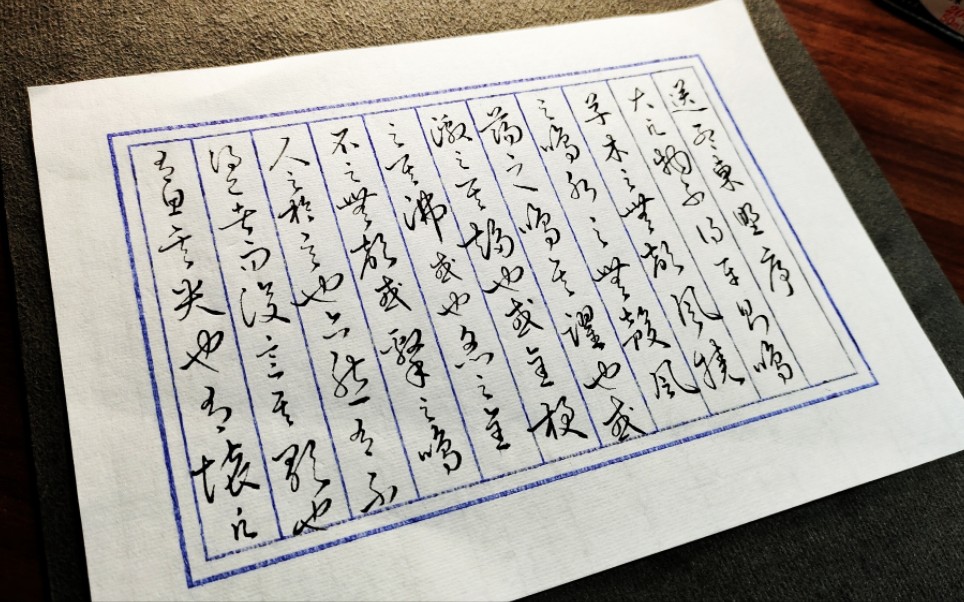 送孟東野序
大凡物不得平則鳴
草木之無聲風撓
之鳴水之無聲風
蕩之鳴其躍也或
激之其趨也或金梗
之其沸或也炙之金
石之無聲或擊之鳴
人之於言也亦然有不
得已者而後言其歌也
有思其哭也有懷凡